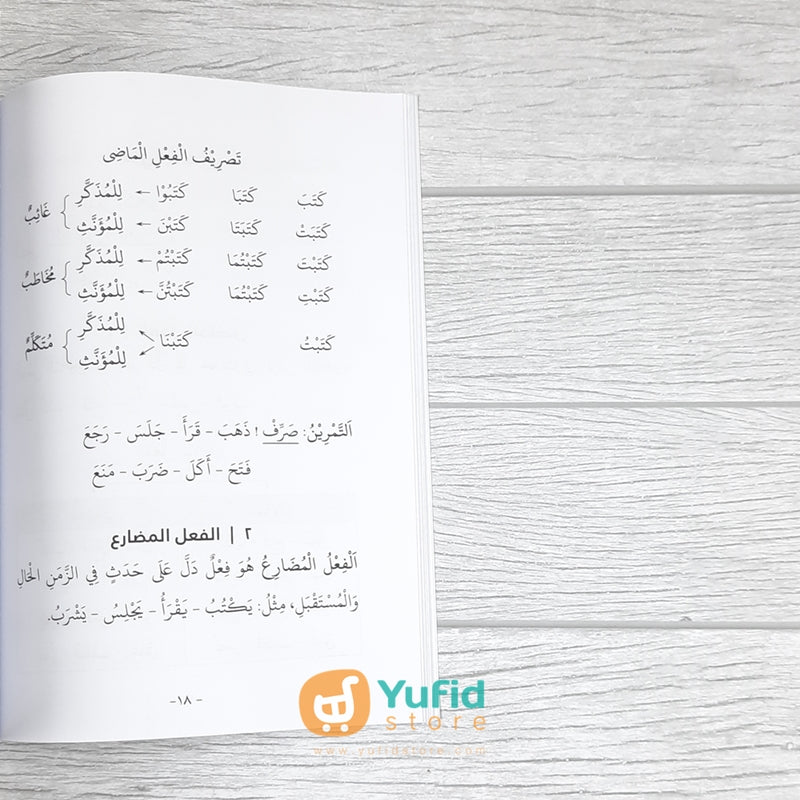 تَصْرِيْفُ الْفِعْلِ الْمَاضِى
كَتَبَ كَتَبَا كَتَبُوْا ← لِلْمُذَكَّرِ
غَائِبٌ
كَتَبَتْ كَتَبَتَا كَتَبْنَ ← لِلْمُؤَنَّثِ
كَتَبْتَ كَتَبْتُمَا كَتَبْتُمْ ← لِلْمُذَكَّرِ
مُخَاطَبٌ
كَتَبْتِ كَتَبْتُمَا كَتَبْتُنَّ ← لِلْمُؤَنَّثِ
لِلْمُذَكَّرِ
كَتَبْتُ كَتَبْنَا مُتَكَلِّمٌ
لِلْمُؤَنَّثِ
اَلتَّمْرِيْنُ: صَرِّفْ ! ذَهَبَ - قَرَأَ - جَلَسَ - رَجَعَ
فَتَحَ - أَكَلَ - ضَرَبَ - مَنَعَ
٢ | الفعل المضارع
اَلْفِعْلُ الْمُضَارِعُ هُوَ فِعْلٌ دَلَّ عَلَى حَدَثٍ فِي الزَّمَنِ الْحَالِ
وَالْمُسْتَقْبَلِ، مِثْلُ: يَكْتُبُ - يَقْرَأُ - يَجْلِسُ - يَشْرَبُ.
-١٨-
Yufid
store
www.yufidstore.com